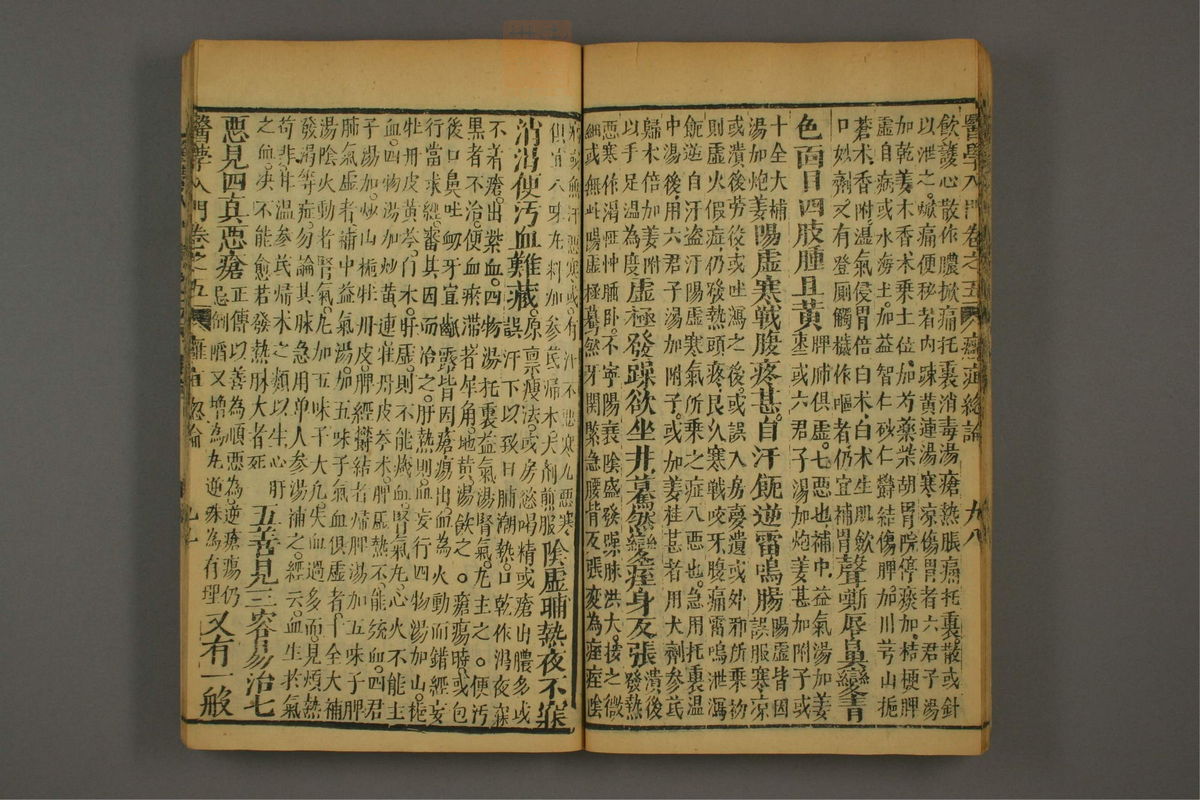 醫學入門卷之五 癰疽總論 九八
飲護心散作膿掀痛托裏消毒湯瘡熱脹痛托裏散或針
以泄之嘔痛便秘者內疎黃連湯寒凉傷胃者六君子湯
加乾姜木香朮乘土位加芍藥柴胡胃脘停痰加桔梗脾
虛自病或水海土加益智仁砂仁鬱結傷脾加川芎山梔
蒼朮香附濕氣侵胃倍白朮白朮生肌飲
口妙劑又有登厠觸穢作嘔者仍宜補胃
聲嘶唇鼻變青
色面目四肢腫且黃
脾肺俱虛七惡也補中益氣湯加姜
棗或六君子湯加炮姜甚加附子或
十全大補
湯加炮姜
陽虛寒戰腹疼甚自汗飥逆雷鳴腸
陽虛皆因
誤服寒凉
或潰後勞役或吐瀉之後或誤入房夢遺或外邪所乘初
則虛火假症仍發熱頭疼良久寒戰咬牙腹痛雷鳴泄瀉
飥逆自汗盜汗陽虛寒氣所乘之症八惡也急用托裏溫
中湯後用六君子湯加附子或加姜桂甚者用大劑參芪
歸朮倍加姜附
以手足溫為度
虛極發躁欲坐井驀然變痙身反張
潰後
發熱
惡寒作渴怔忡臥不寧陽衰陰盛發躁脉洪大按之微
細或無此陽虛極驀然牙關緊急腰背反張變為痙痙陰
病或無汗惡寒或有汗不惡寒凡惡寒
俱宜八味丸料加參芪歸朮大劑煎服
陰虛晡熱夜不寐
消渴便汚血難藏
原禀瘦法或房慾喝精或瘡出膿多或
誤汗下以致日晡潮熱口乾作渴夜寐
不着瘡出紫血四物湯托裏益氣湯腎氣丸主之。便汚
黑者不治便血瘀滯者犀角地黃湯飲之。瘡瘍時或包
後口鼻吐衂牙宜齗露皆因瘡瘍出血為火動而錯經妄
行當求經審其因而治之肝熱則血妄行四物湯加山梔
牡丹皮黃芩門朮肝虛則不能藏血腎氣丸心火不能主
血四物湯加炒黃連丹皮芩朮脾虛熱不能統血四君
子湯加炒山梔牡丹皮脾經鬱結者歸脾湯加五味子脾
肺氣虛者補中益氣湯加五味子氣血俱虛者十全大補
湯陰火動者腎氣丸加五味子大凡失血過多而見煩熱
發渴等症勿論其脉急用單人參湯補之經云血生於氣
苟非甘溫參芪歸朮之類以生心肝
之血决不能愈若發熱脉大者死
五善見三容易治七
惡見四真惡瘡
正傳以善為順惡為逆瘡瘍仍
忌倒嚼又增為九逆殊為有理
又有一般
醫學入門卷之五